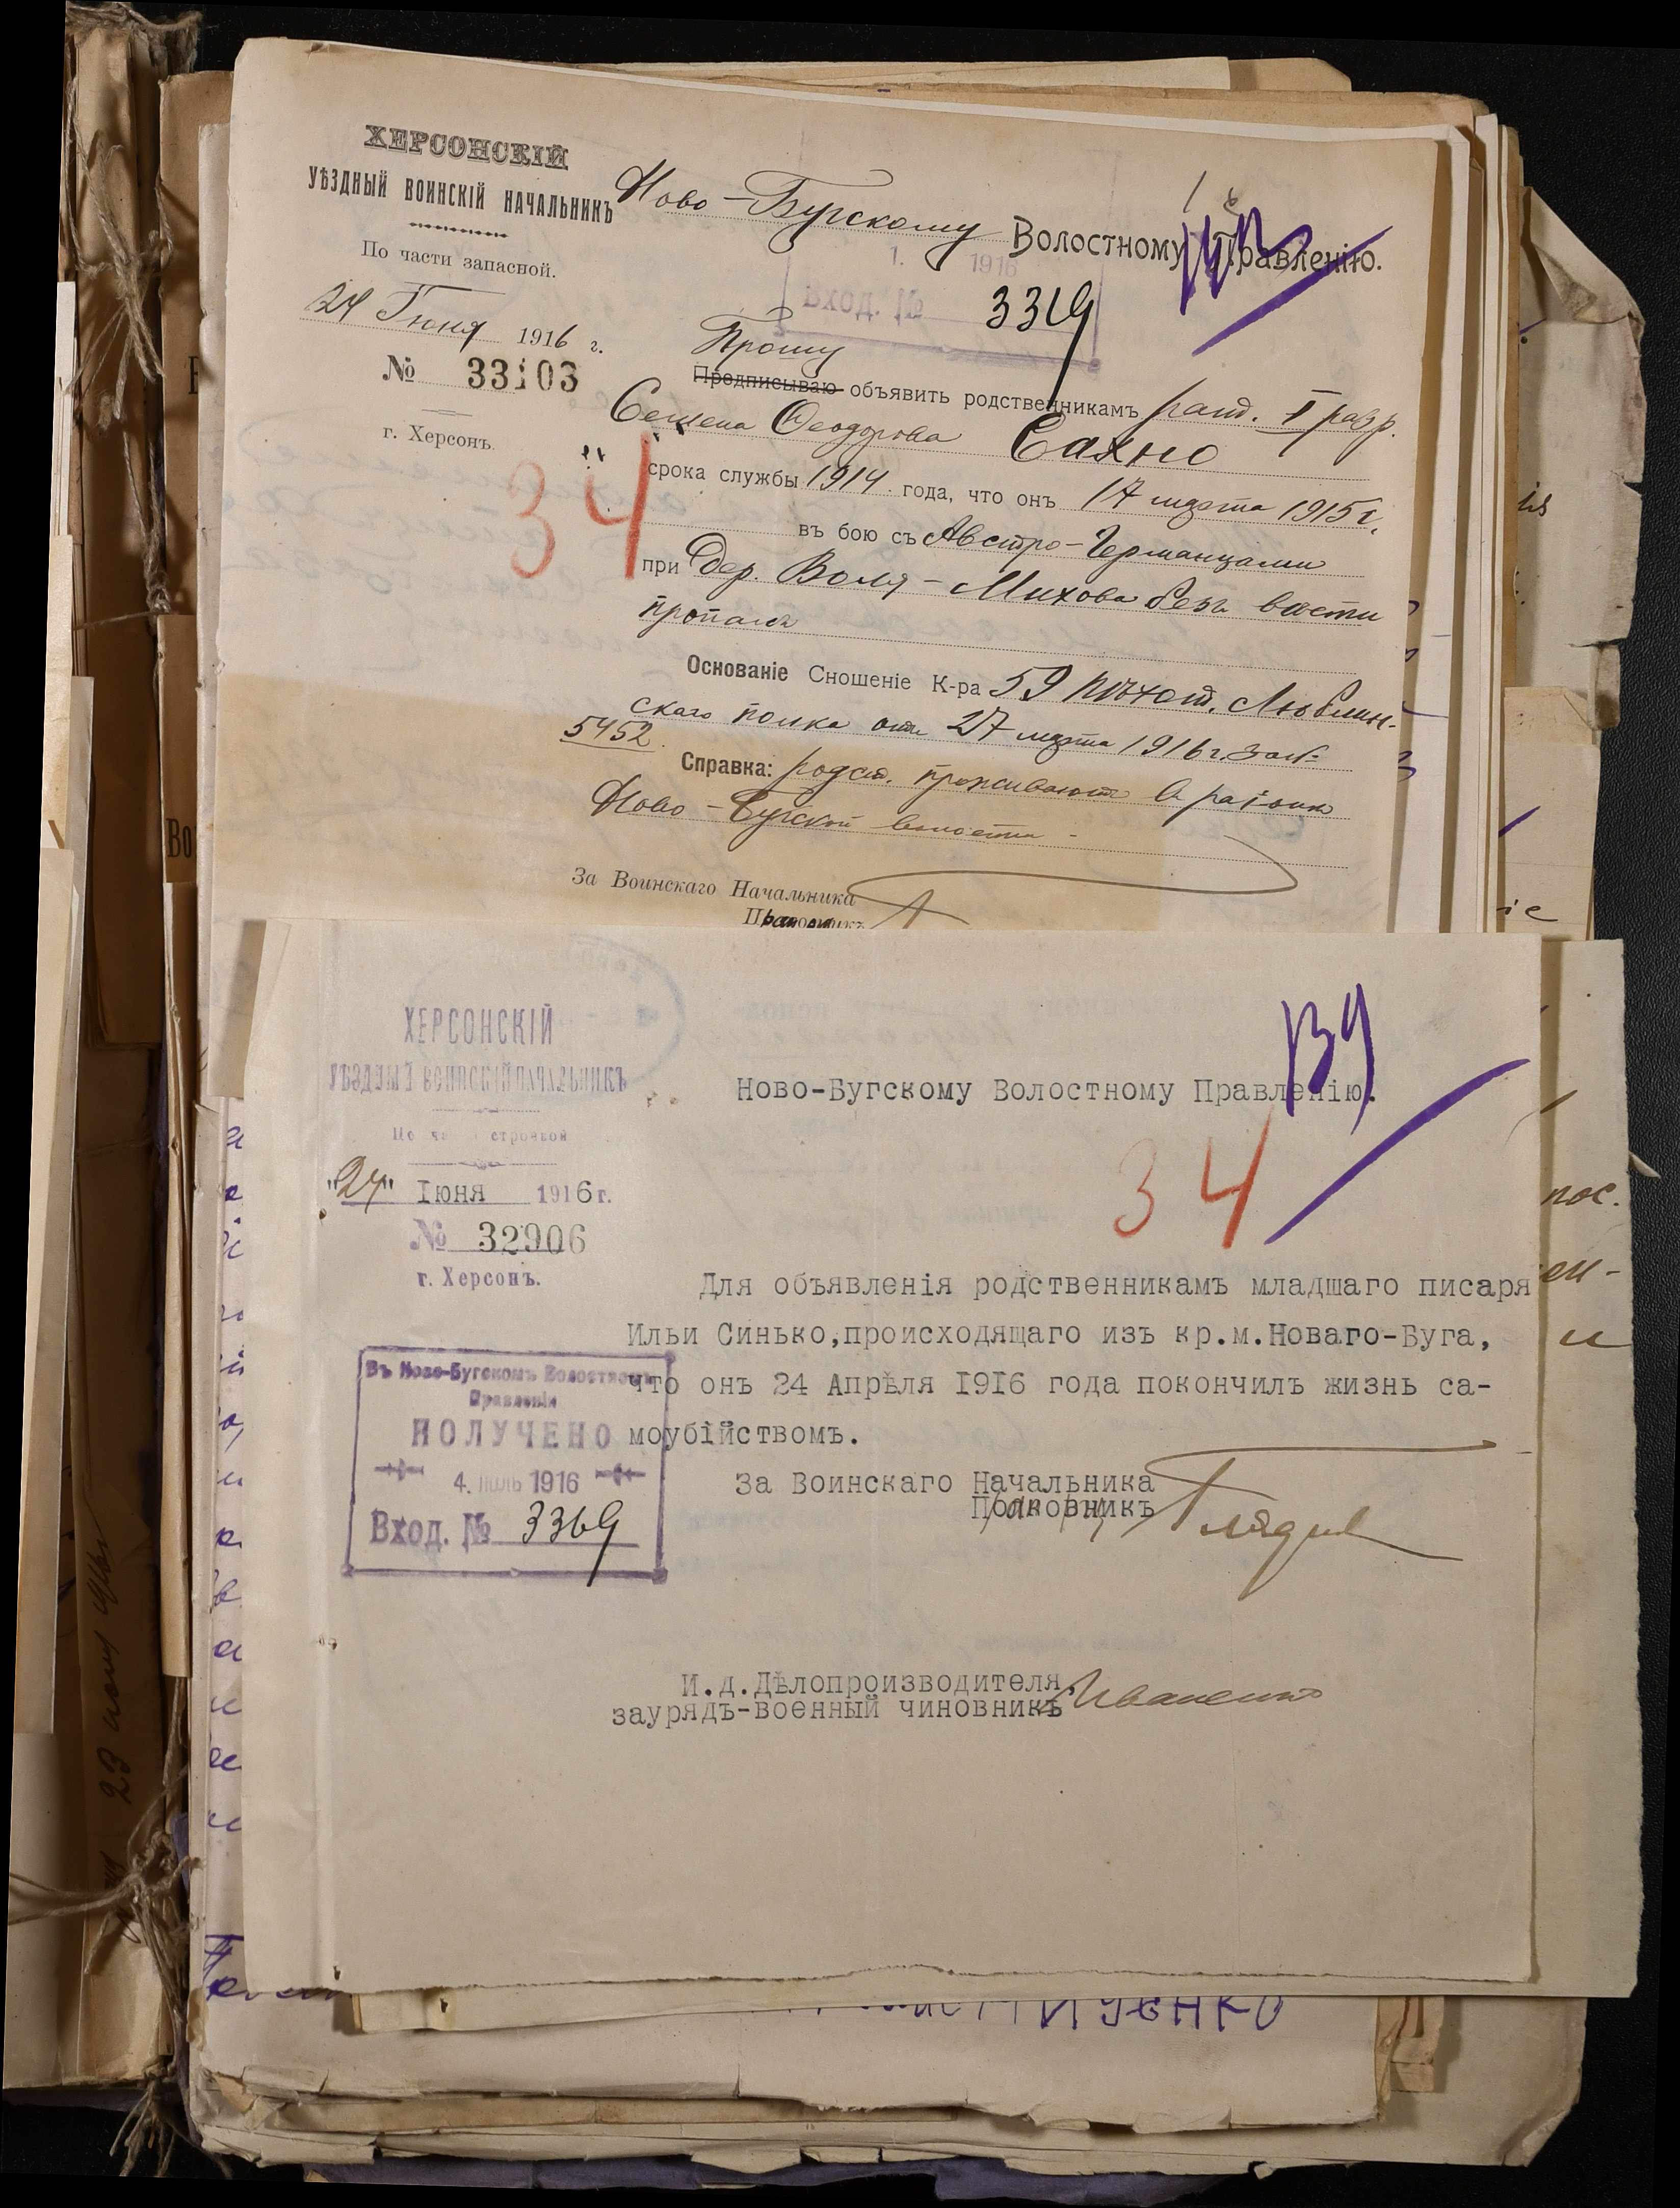 ХЕРСОНСКІЙ
УѢЗДНЫЙ ВОИНСКІЙ НАЧАЛЬНИКЪ
По части запасной.
24 Іюня 1916 г.
№ 33103
г. Херсонъ.
34
Ново-Бугскому Волостному Правленію.
1. 1916
Вход. № 3369
Прошу
Предписываю объявить родственникамъ рат. I разр.
Семена Ѳеодорова Сахно
срока службы 1914 года, что онъ 17 марта 1915 г.
въ бою съ Австро-Германцами
при дер. Воля-Михова безъ вести
пропалъ
Основаніе Сношеніе К-ра 59 пѣхот. Люблин-
скаго полка отъ 27 марта 1916 г. за №
5452.
Справка: родст. проживаютъ в раіоне
Ново-Бугской волости
За Воинскаго Начальника
ХЕРСОНСКІЙ
УѢЗДНЫЙ ВОИНСКІЙ НАЧАЛЬНИКЪ
По части строевой
"24" Іюня 1916 г.
№ 32906
г. Херсонъ.
Ново-Бугскому Волостному Правленію.
34
Для объявленія родственникамъ младшаго писаря
Ильи Синько,происходящаго изъ кр.м.Новаго-Буга,
что онъ 24 Апрѣля 1916 года покончилъ жизнь са-
моубійствомъ.
Въ Ново-Бугскомъ Волостномъ
Правленіи
ПОЛУЧЕНО
4. ІЮЛЬ 1916
Вход. № 3369
За Воинскаго Начальника
Полковникъ
И.д.Дѣлопроизводителя,
заурядъ-военный чиновникъ Иваненко